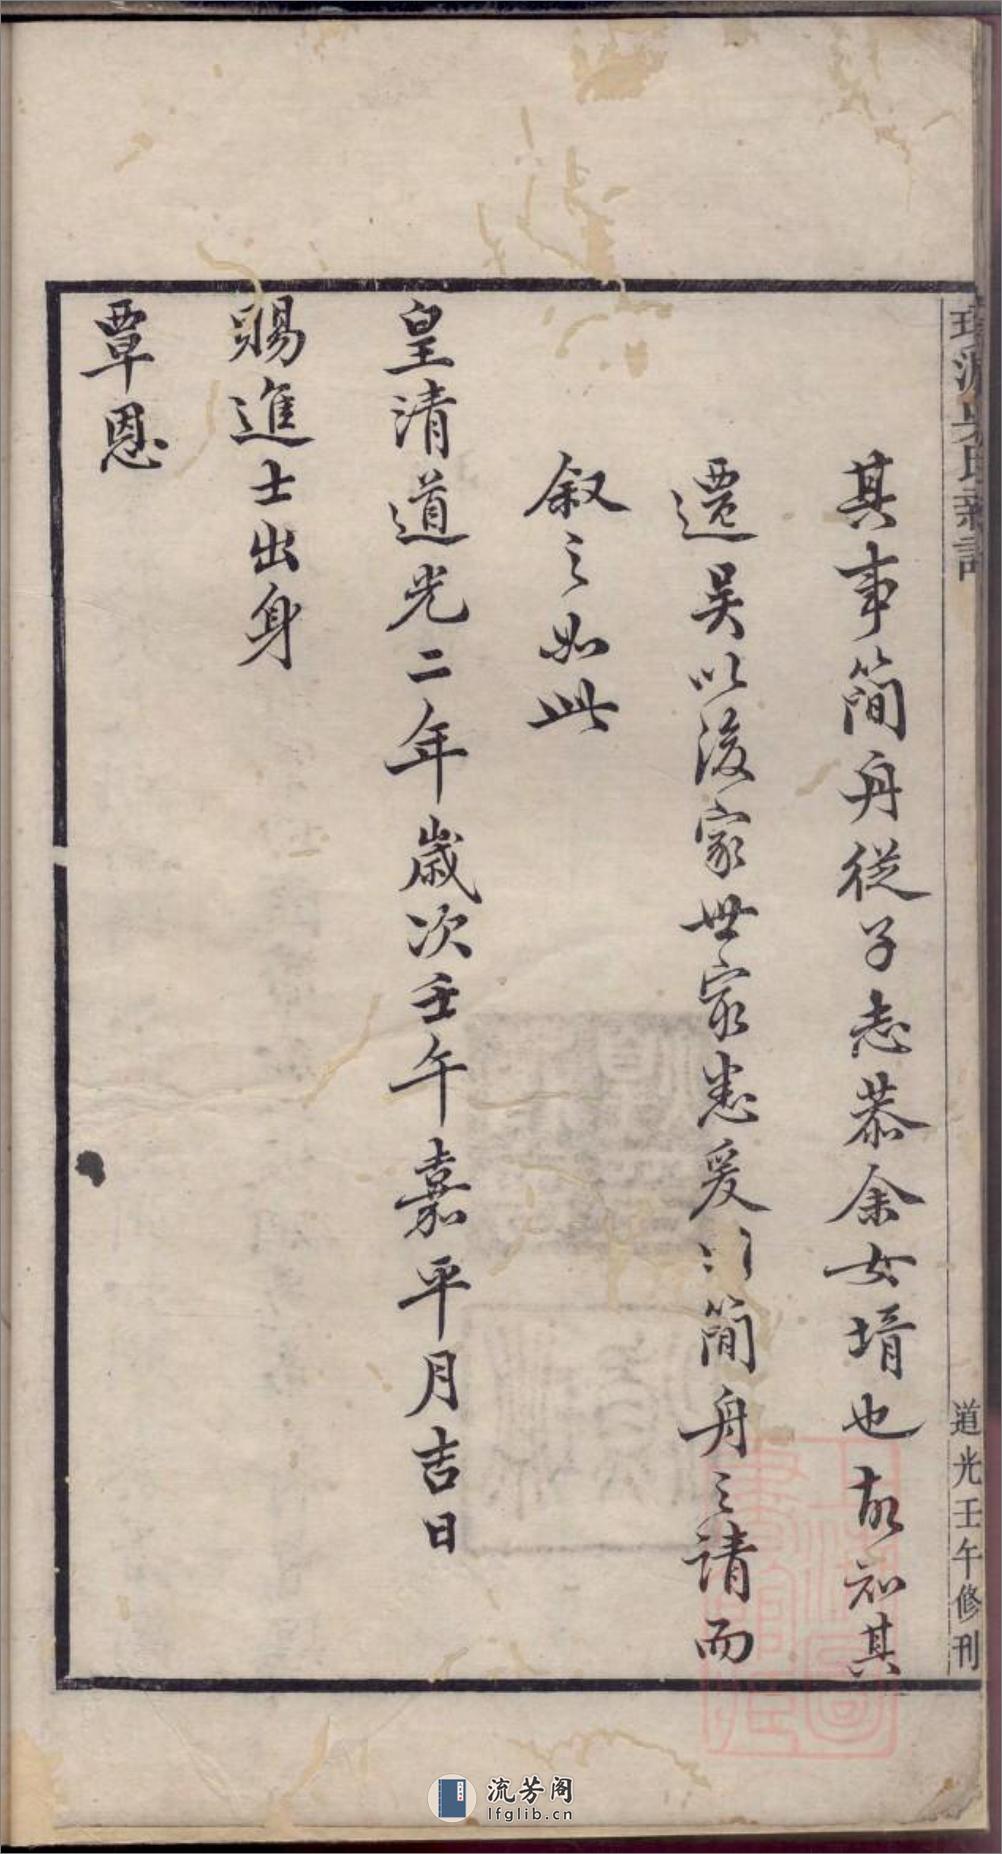 其事簡舟從子志恭余女壻也故知其
遷吴以後家世家悉爰以簡舟之請而
叙之如此
皇清道光二年歲次壬午嘉平月吉日
賜進士出身
覃恩
氏
道光壬午修刊
流芳阁
lfglib.cn